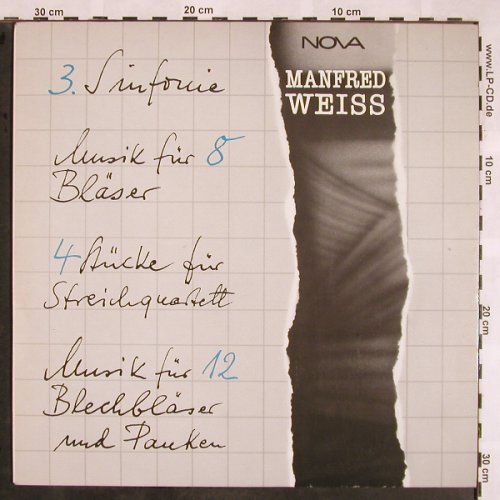 30 cm
20 cm
10 cm
NOVA
MANFRED
WEISS
3. Sinfonie
Musik für 8
Bläser
4 Stücke für
Streichquartett
Musik für 12
Blechbläser
und Pauken
www.LP-CD.de
10 cm
20 cm
30 cm